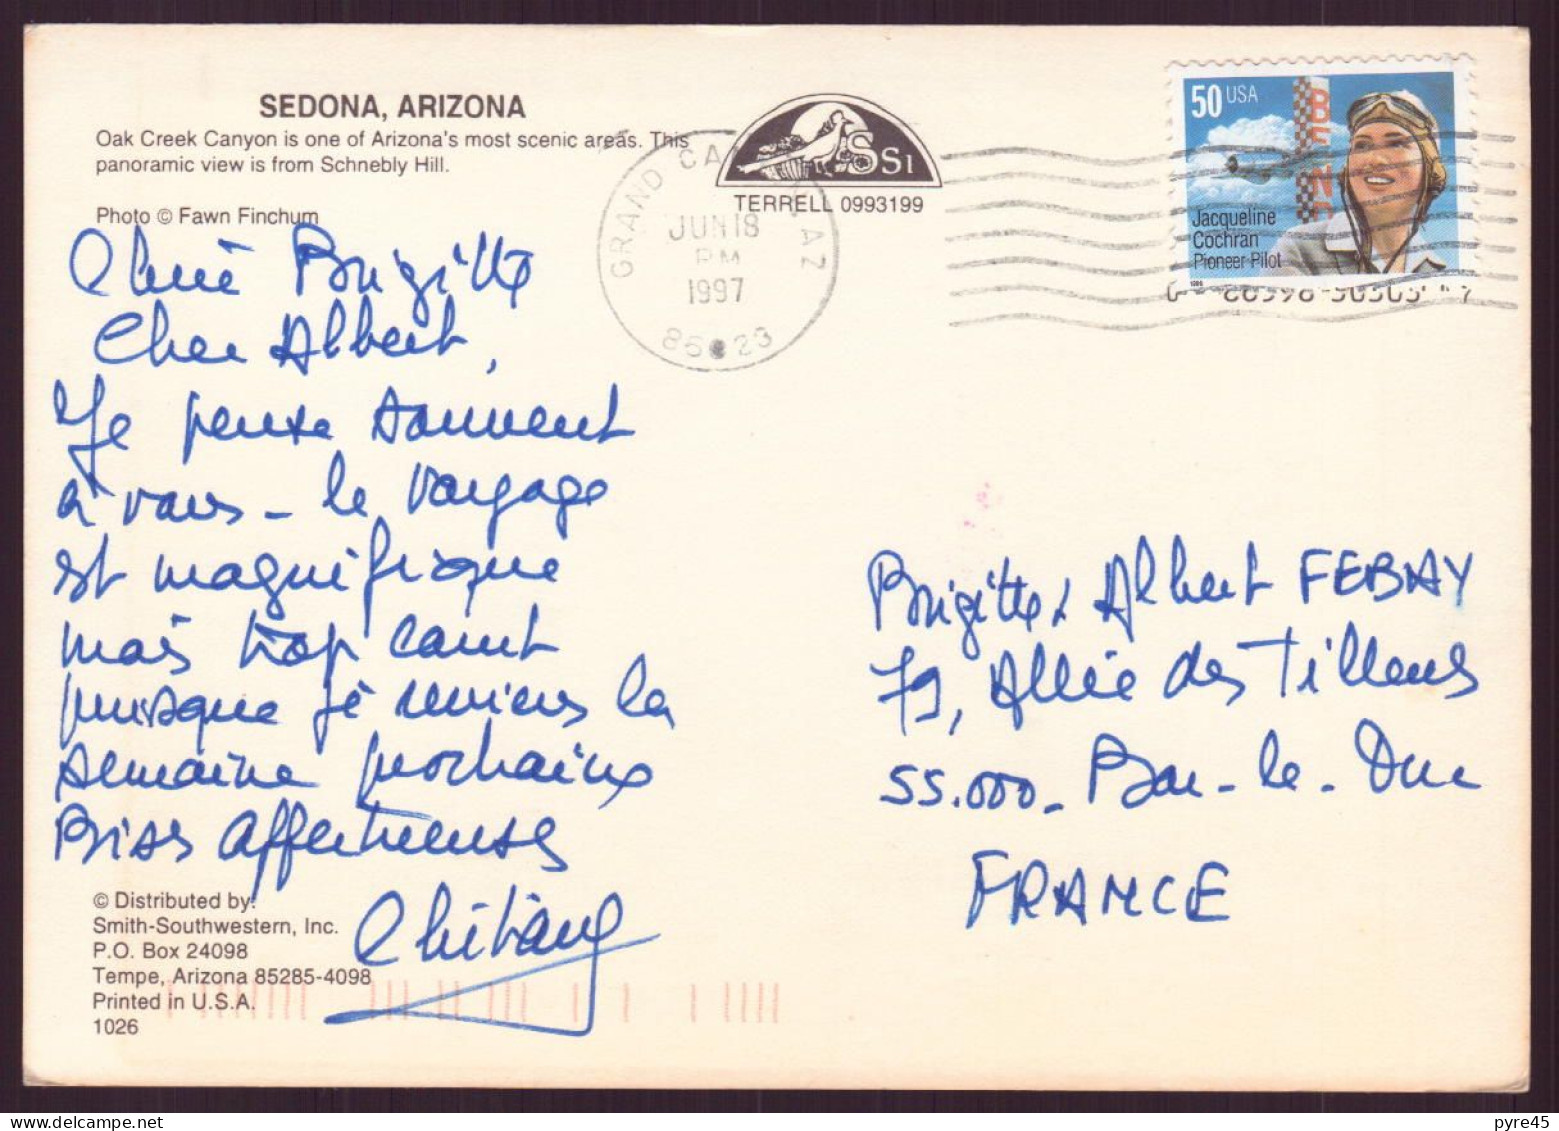 SEDONA, ARIZONA
Oak Creek Canyon is one of Arizona's most scenic areas. This
panoramic view is from Schnebly Hill.
Photo © Fawn Finchum
Chère Brigitte
Cher Albert,
Je pense souvent
à vous - le voyage
est magnifique
mais trop court
puisque je reviens la
semaine prochaine
Bises affectueuses
© Distributed by:
Smith-Southwestern, Inc.
P.O. Box 24098
Tempe, Arizona 85285-4098
Printed in U.S.A.
1026
SS1
TERRELL 0993199
GRAND CA AZ
JUN 18
PM
1997
86023
50 USA
BEN
Jacqueline
Cochran
Pioneer Pilot
1996
Brigitte & Albert FEBAY
79, Allée des Tilleuls
55.000 - Bar-le-Duc
FRANCE
pyre45